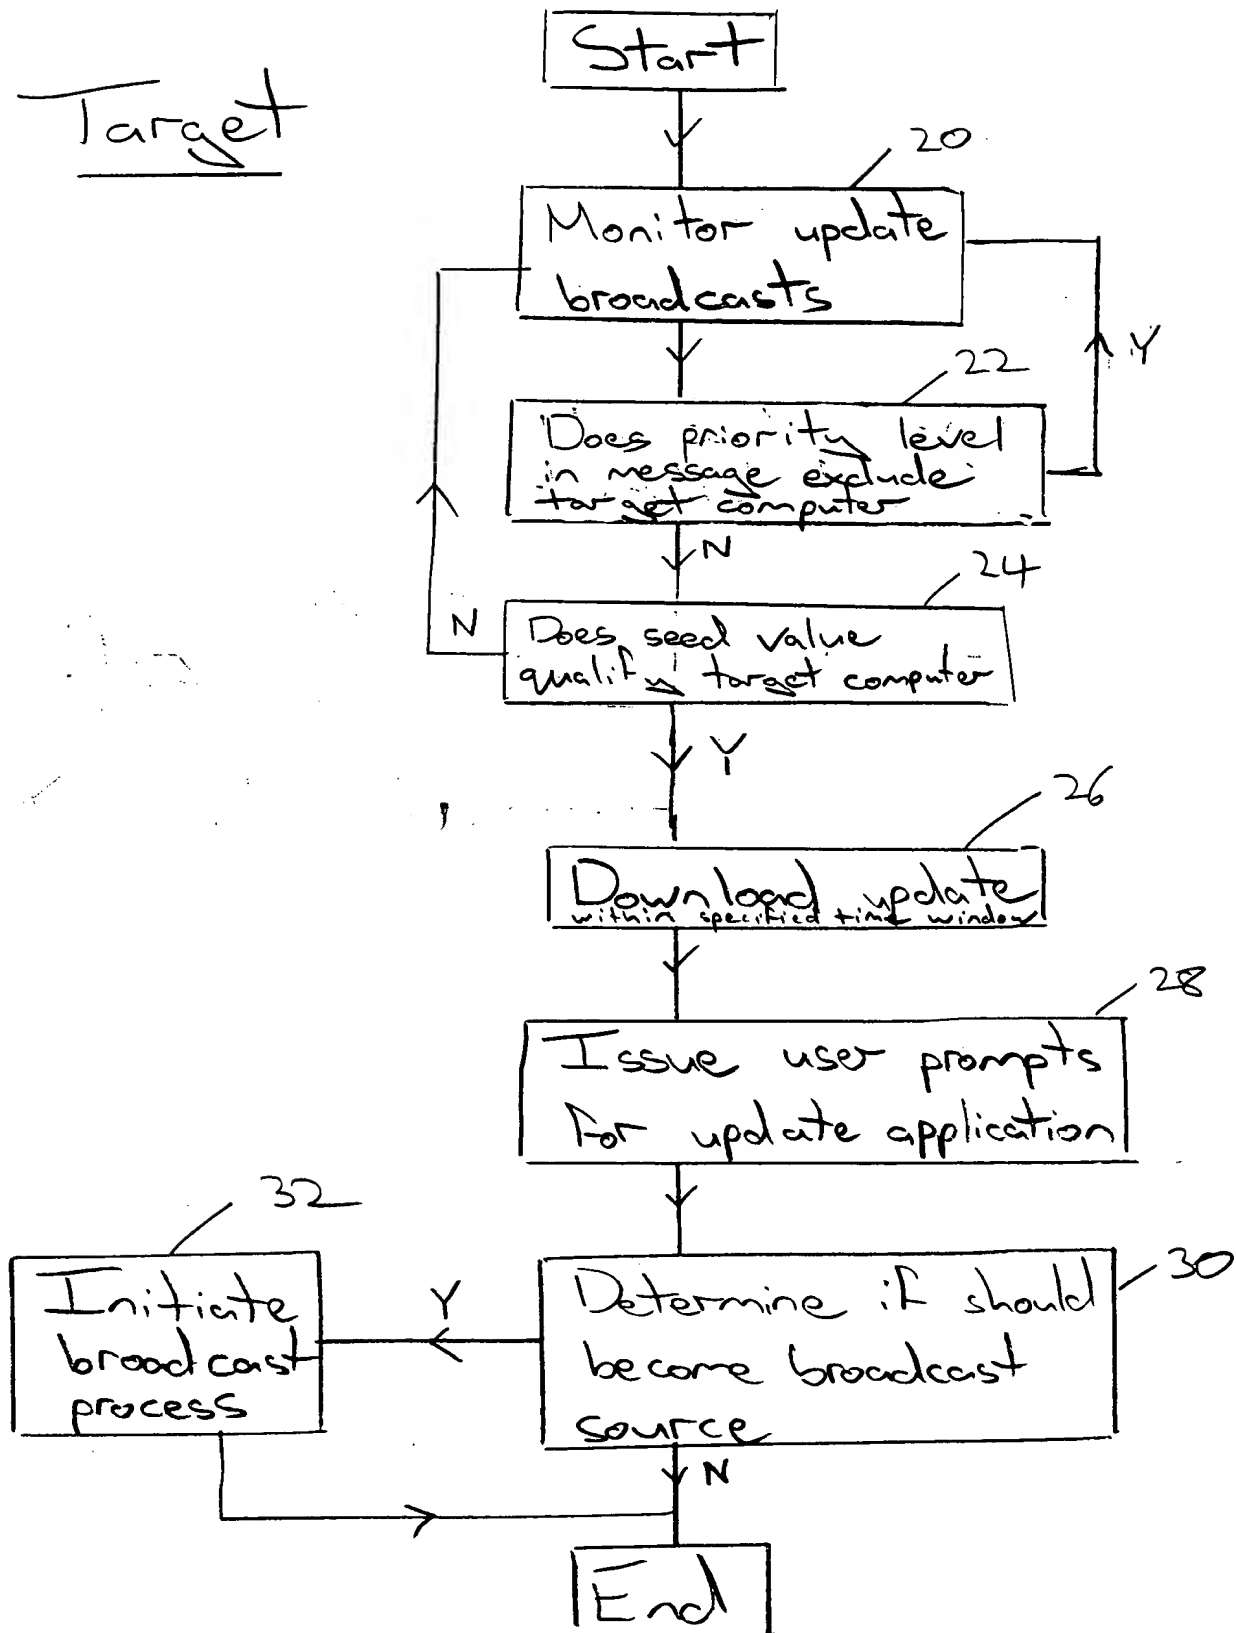 Start
Target
20
Monitor update
broadcasts
Y
22
Does priority level
in message exclude
target computer
N
24
N
Does seed value
qualify target computer
Y
26
Download update
within specified time window
28
Issue user prompts
for update application
32
Initiate
broadcast
process
Y
30
Determine if should
become broadcast
source
N
End